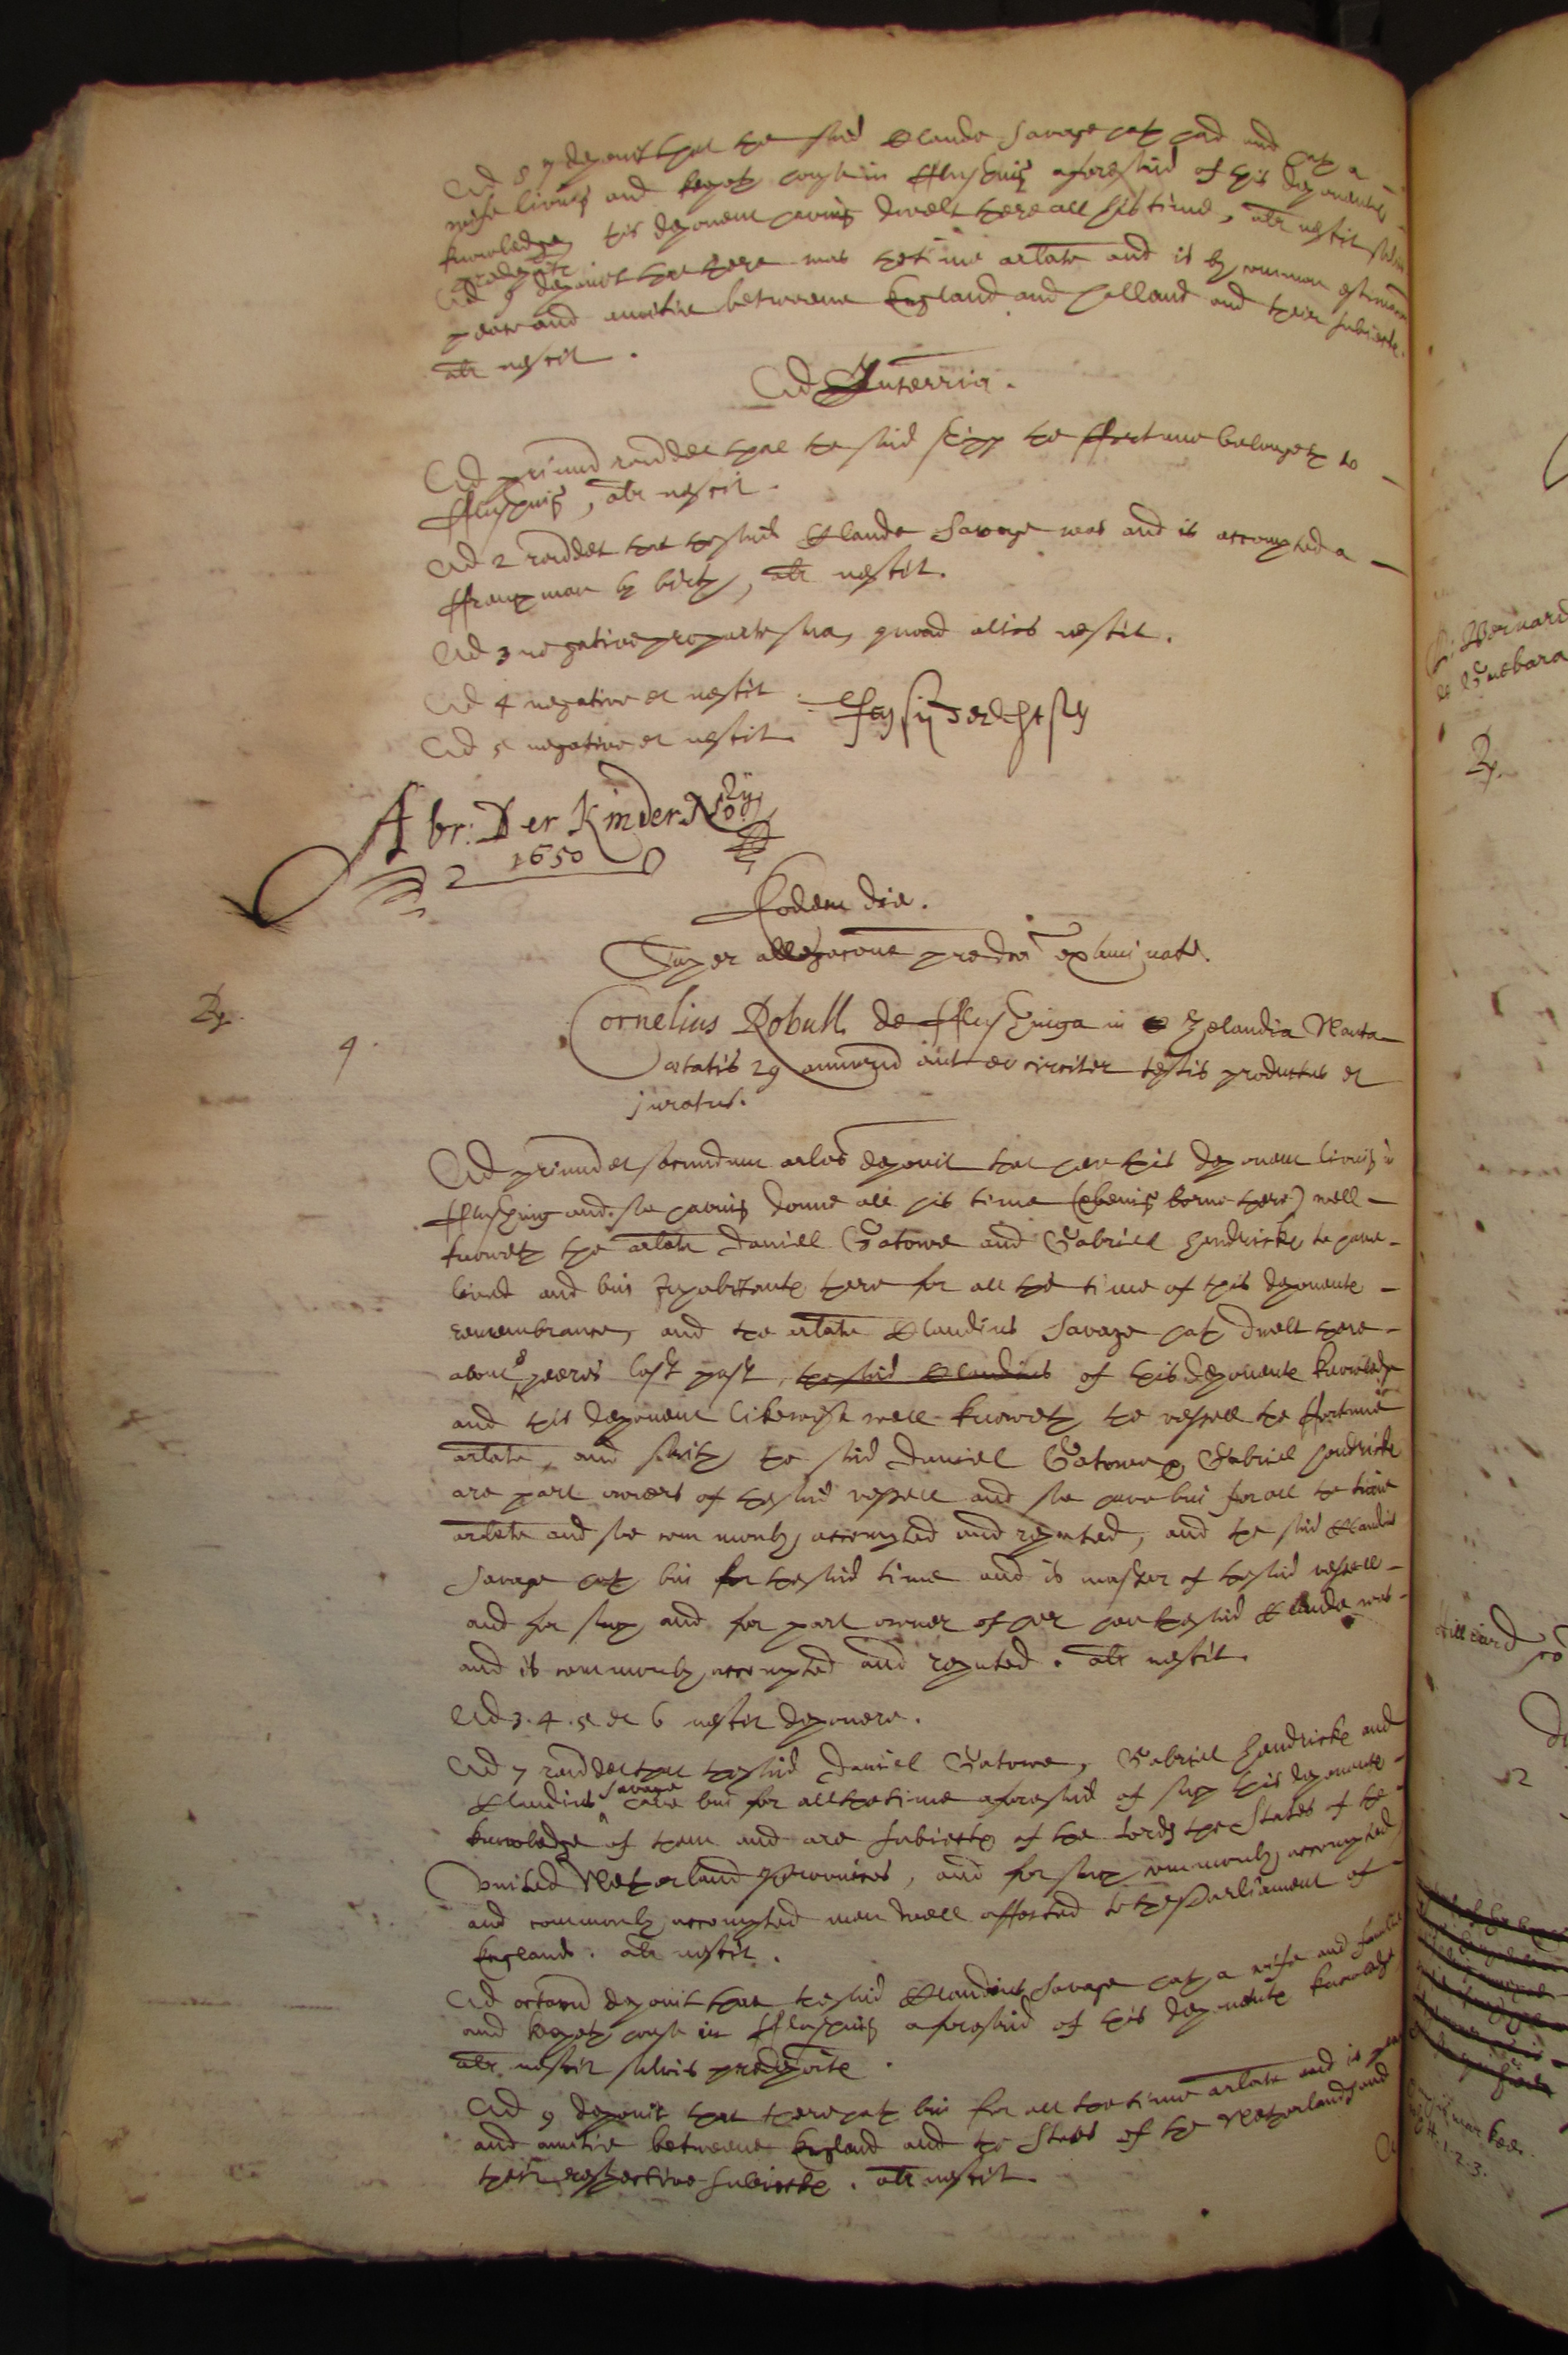 Ad 8 deponit that the said Claude Savage hath had and hath a
wife living and keepeth house in fflushing aforesaid of this deponents
knowledge this deponent having dwelt there all his time, alr nescit salvis
predepoitis
Ad 9 deponit that there was the time arlate and is by common estimacon
peace and amitie betweene England and Holland and their subiects.
alr nescit.
Ad Interria.
Ad primum rendet that the said shipp the ffortune belongeth to
fflushing, alr nescit.
Ad 2 rendet that the said Claude Savage was and is accompted a
ffrenchman by birth, alr nescit.
Ad 3 negative pro parte sua, quoad alios nescit.
Ad 4 negative et nescit
Ad 5 negative et nescit
Abr: Der Kinder Nory
1650
Eodem die.
Super allegacone predca examinate.
Rp.
4.
Cornelius Robull de fflushinga in Zelandia Nauta
ætatis 29 annorum aut eo circiter testis productus et
juratus.
Ad primum et secundum arlos deponit that hee this deponent living in
fflushing and soe having donne all his time (beeing borne there) well
knoweth the arlate Daniell Gatowe and Gabriell Hendricks to have
lived and bin Inhabitants there for all the time of this deponents
remembrance, and the arlate Claudius Savage hath dwelt there
about 8 yeeres last past, the said Claudius of this deponents knowledge
and this deponent likewise well knoweth the vessell the ffortune
arlate, and saith the said Daniel Gatowe & Gabriel Hendricks
are part owners of the said vessell and soe have bin for all the time
arlate and soe commonly accompted and reputed, and the said Claudius
Savage hath bin for the said time and is master of the said vessell
and for such and for part owner of her hee the said Claude was
and is commonly accompted and reputed. alr nescit.
Ad 3. 4. 5 et 6 nescit deponere.
Ad 7 rendet that the said Daniel Gatowe, Gabriel Hendricks and
Claudius Savage have bin for all the time aforesaid of such this deponents
knowledge of them and are subiects of the Lords the States of the
United Netherland Provinces, and for such commonly accompted,
and commonly accompted men well affected to the Parliament of
England. alr nescit.
Ad octavum deponit that the said Claudius Savage hath a wife and familie
and keepeth house in fflushing aforesaid of this deponents knowledge
alr nescit salvis predepoitis.
Ad 9 deponit that there hath bin for all the time arlate and is peace
and amitie betweene England and the States of the Netherlands and
their respective subiects. alr nescit.